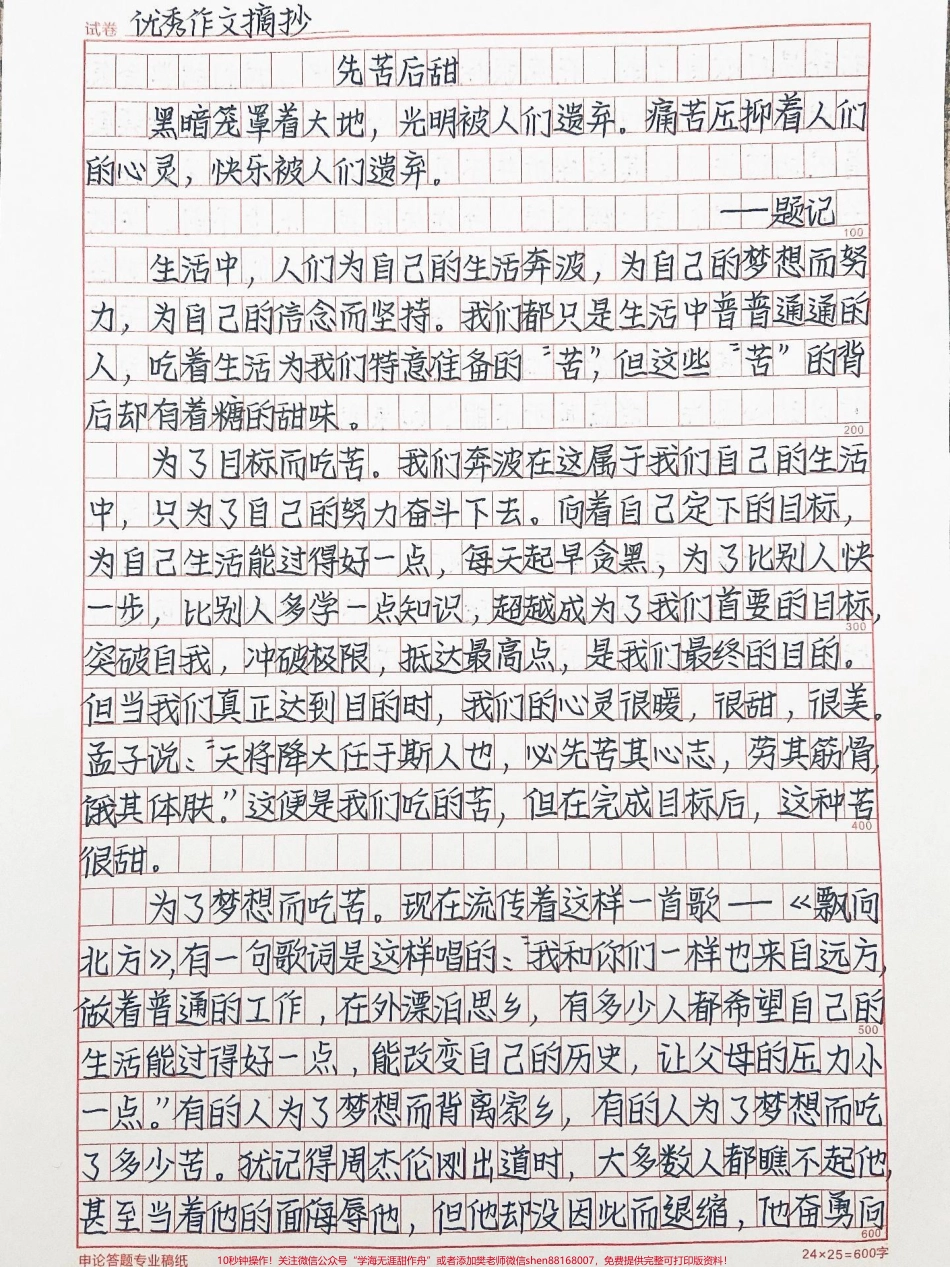 试卷 优秀作文摘抄
先苦后甜
黑暗笼罩着大地，光明被人们遗弃。痛苦压抑着人们
的心灵，快乐被人们遗弃。
——题记
100
生活中，人们为自己的生活奔波，为自己的梦想而努
力，为自己的信念而坚持。我们都只是生活中普普通通的
人，吃着生活为我们特意准备的“苦”，但这些“苦”的背
后却有着糖的甜味。
200
为了目标而吃苦。我们奔波在这属于我们自己的生活
中，只为了自己的努力奋斗下去。向着自己定下的目标，
为自己生活能过得好一点，每天起早贪黑，为了比别人快
一步，比别人多学一点知识，超越成为了我们首要的目标，
300
突破自我，冲破极限，抵达最高点，是我们最终的目的。
但当我们真正达到目的时，我们的心灵很暖，很甜，很美。
孟子说：“天将降大任于斯人也，必先苦其心志，劳其筋骨，
饿其体肤。”这便是我们吃的苦，但在完成目标后，这种苦
400
很甜。
为了梦想而吃苦。现在流传着这样一首歌——《飘向
北方》，有一句歌词是这样唱的：“我和你们一样也来自远方，
做着普通的工作，在外漂泊思乡，有多少人都希望自己的
500
生活能过得好一点，能改变自己的历史，让父母的压力小
一点。”有的人为了梦想而背离家乡，有的人为了梦想而吃
了多少苦。犹记得周杰伦刚出道时，大多数人都瞧不起他，
甚至当着他的面侮辱他，但他却没因此而退缩，他奋勇向
600
申论答题专业稿纸 10秒钟操作！关注微信公众号“学海无涯甜作舟”或者添加樊老师微信shen88168007，免费提供完整可打印版资料！ 24×25=600字